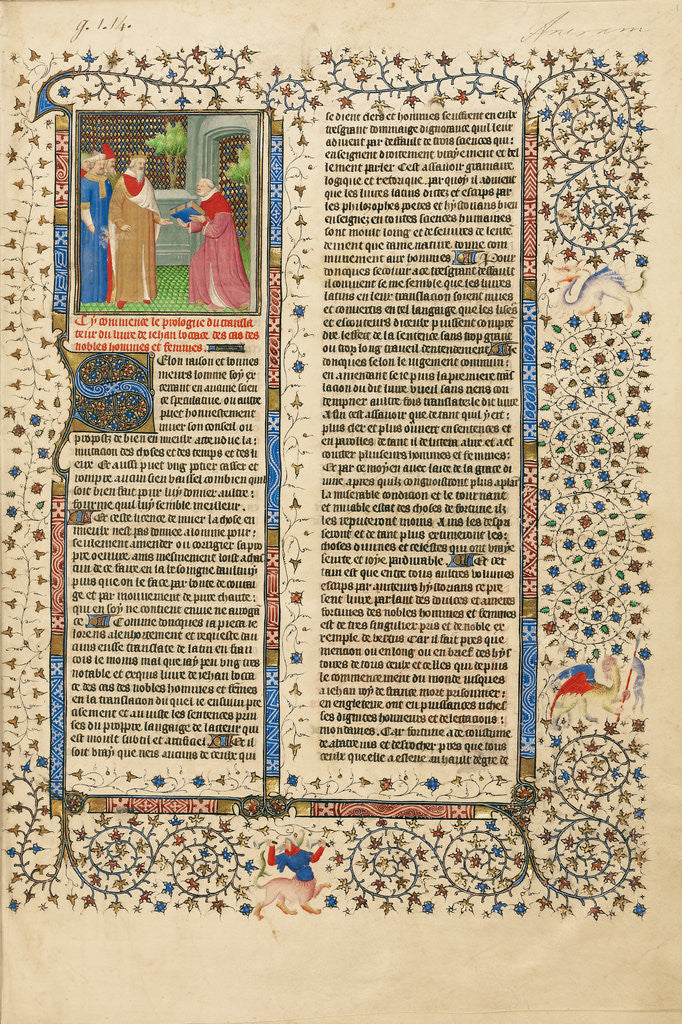 g. 1. 14.
Cy commence le prologue du transla
teur du livre de iehan boccace des cas des
nobles hommes et femmes.
Selon raison et bonnes
meurs lomme soy ex
cercant en aucune scien
ce speculative, ou autre
puet honnestement
muer son conseil ou
propos de bien en mieulx attendue la
mutacion des choses et des temps et des
lieux Et aussi puet ung potier casser et
rompre aucun sien vaissel combien quil
soit bien fait pour luy donner autre
fourme qui luy semble meilleur.
Et ceste licence de muer la chose en
mieulx nest pas donnee a lomme pour
seulement amender ou corrigier sa pro
pre oeuvre, ains mesmement loist a chas
cun de ce faire en la besongne daultruy
puis que on le face par bonte de coura
ge et par mouvement de pure charite
qui en soy ne contient envie ne arrogan
ce Comme doncques ia pieca ie
lorens a lenhortement et requeste dau
cuns eusse translate de latin en fran
cois le moins mal que iay peu ung tres
notable et exquis livre de iehan bocca
ce des cas des nobles hommes et femes
en la translacion du quel ie ensuivi pre
cisement et au iuste les sentences prin
ses du propre langaige de lacteur qui
est moult subtil et artificiel Et il
soit vray que neis aucuns de ceulx qui
se dient clers et hommes seuffrent en eulx
tresgrant dommaige dignorance qui leur
advient par deffault de trois sciences qui
enseignent droitement vrayement et bel
lement parler Cest assavoir gramaire
logique et retorique. par quoy il advient
que les livres latins dittez et escrips par
les philosophes poetes et hystorians bien
enseignez en toutes sciences humaines
sont moult long et dessevrez de lente
dement que dame nature donne com
munement aux hommes Pour
doncques secourir a ce tresgrant deffault
il convient se me semble que les livres
latins en leur translacion soient muez
et convertis en tel langaige que les lisés
et escouteurs diceulx puissent compre
dre leffect de la sentence sans trop grant
ou trop long travail dentendement Je
doncques selon le iugement commun
en amendant se ie puis la premiere tras
lacion du dit livre vueil sans riens con
tempner autre fois translater le dit livre
A fin cest assavoir que de tant quil y ert
plus cler et plus ouvert en sentences et
en parolles de tant il delitera a lire et a es
couster plusieurs hommes et femmes
Et par ce moyen avec laide de la grace di
vine apres ce quilz congnoistront plus aplai
la miserable condicion et le tournant
et muable estat des choses de fortune ilz
les repriseront moins Ains les despri
seront et de tant plus extimeront les
choses divines et celestes qui ont vraye
seurte et ioye pardurable Et cer
tain est que entre tous autres volumes
escrips par aucteurs hystorians ce pre
sent livre parlant des doulces et ameres
fortunes des nobles hommes et femmes
est de tres singulier pris et de noble ex
emple de vertus Car il fait pres que
mencion ou en long ou en brief des hys
toires de tous ceulx et celles qui depuis
le commencement du monde iusques
a iehan roy de france mort prisonnier
en engleterre ont eu puissances riches
ses dignitez honneurs et delectacions
mondaines. Car fortune a de coustume
dabatre ius et destrochier pres que tous
ceulx que elle a esleve en hault degre de